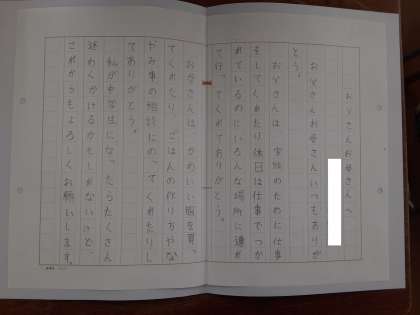 お父さんお母さんへ
お父さんお母さんいつもありが
とう。
お父さんは、家族のために仕事
をしてくれたり休日は仕事でつか
れているのにいろんな場所に連れ
て行ってくれてありがとう。
お母さんは、かわいい服を買っ
てくれたり、ごはんの作り方やな
やみ事の相談にのってくれたりし
てありがとう。
私が中学生になったらたくさん
迷わくかけるかもしれないけど、
これからもよろしくお願いします。